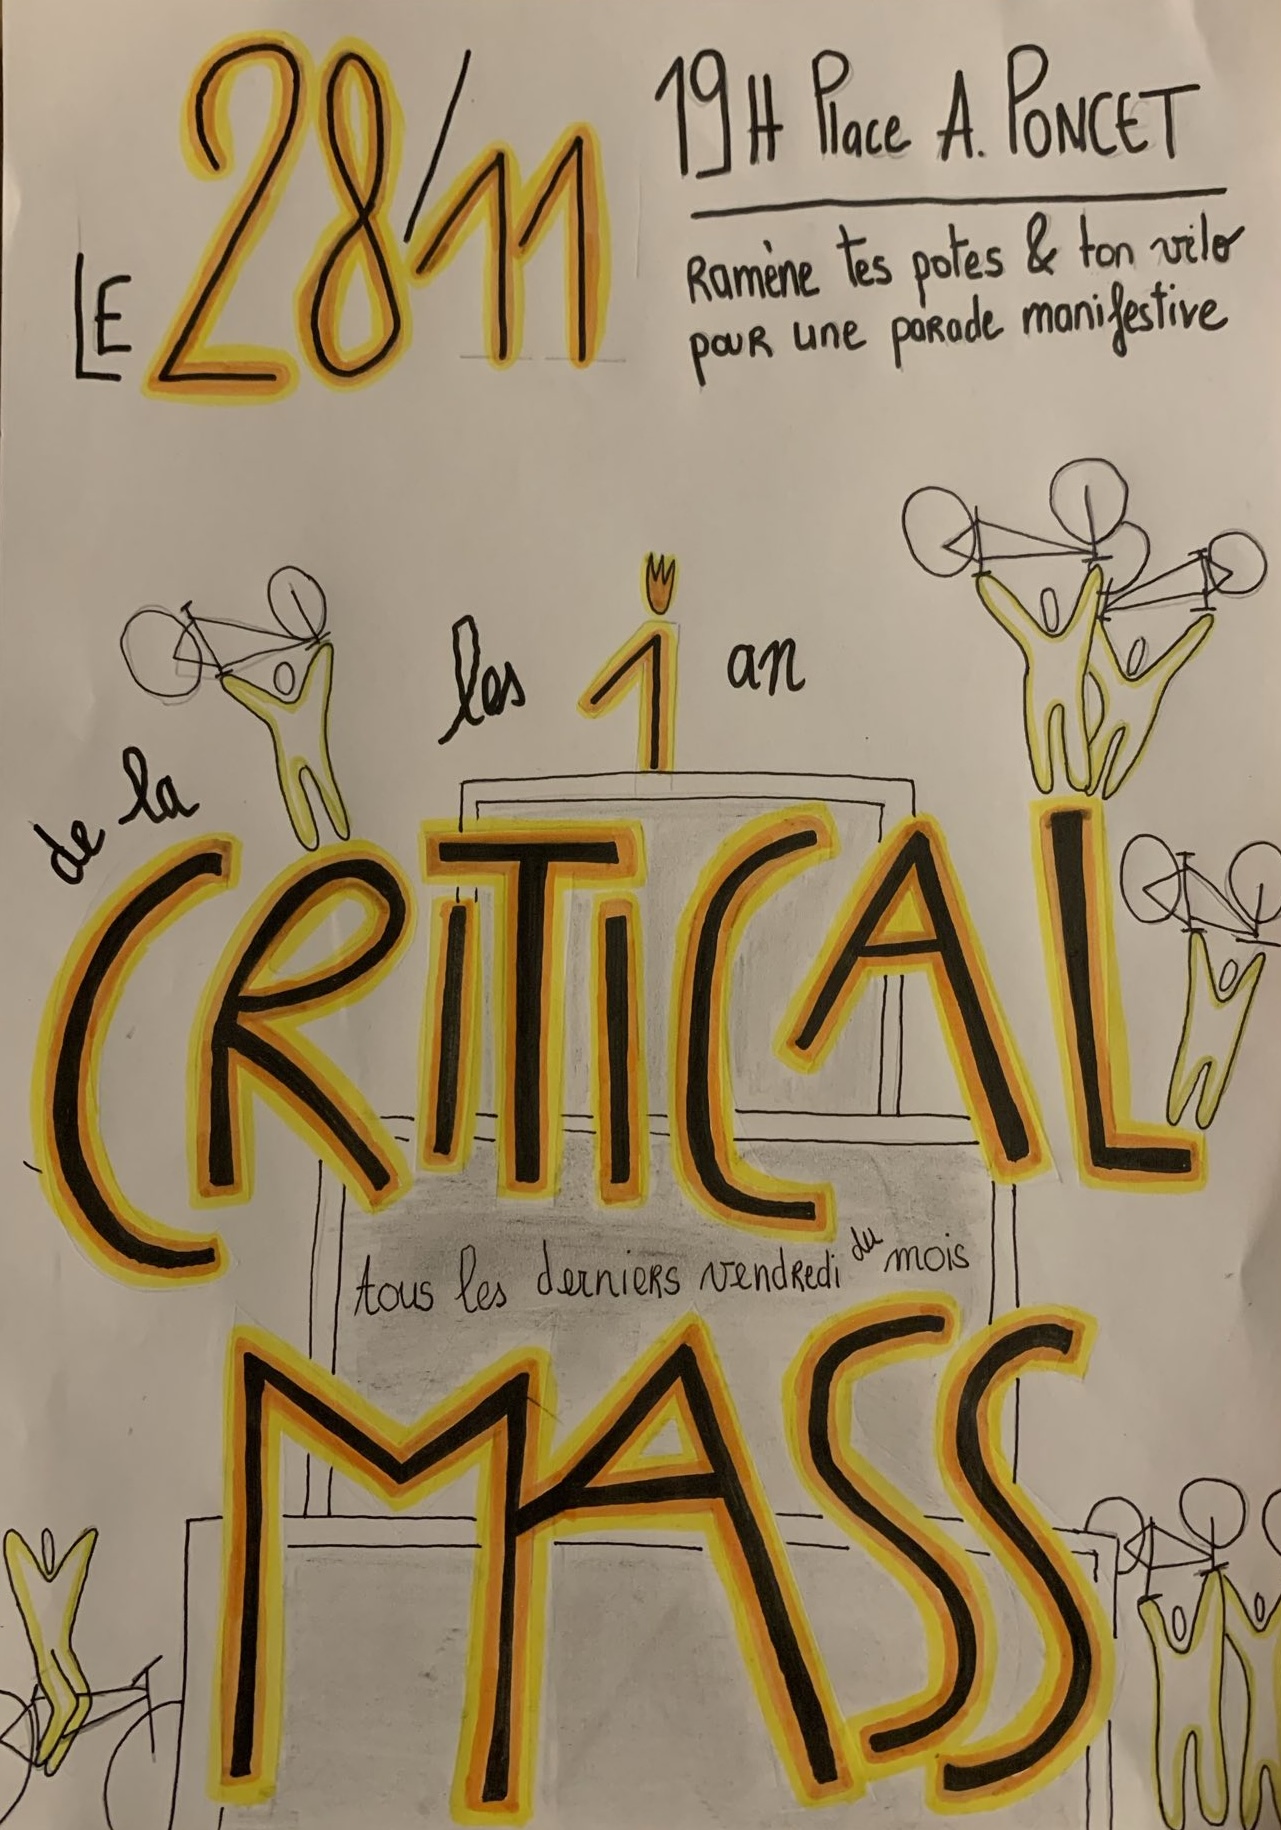 LE 28/11
19H Place A. PONCET
Ramène tes potes & ton vélo
pour une parade manifestive
les 1 an
de la
CRITICAL
tous les derniers vendredi du mois
MASS